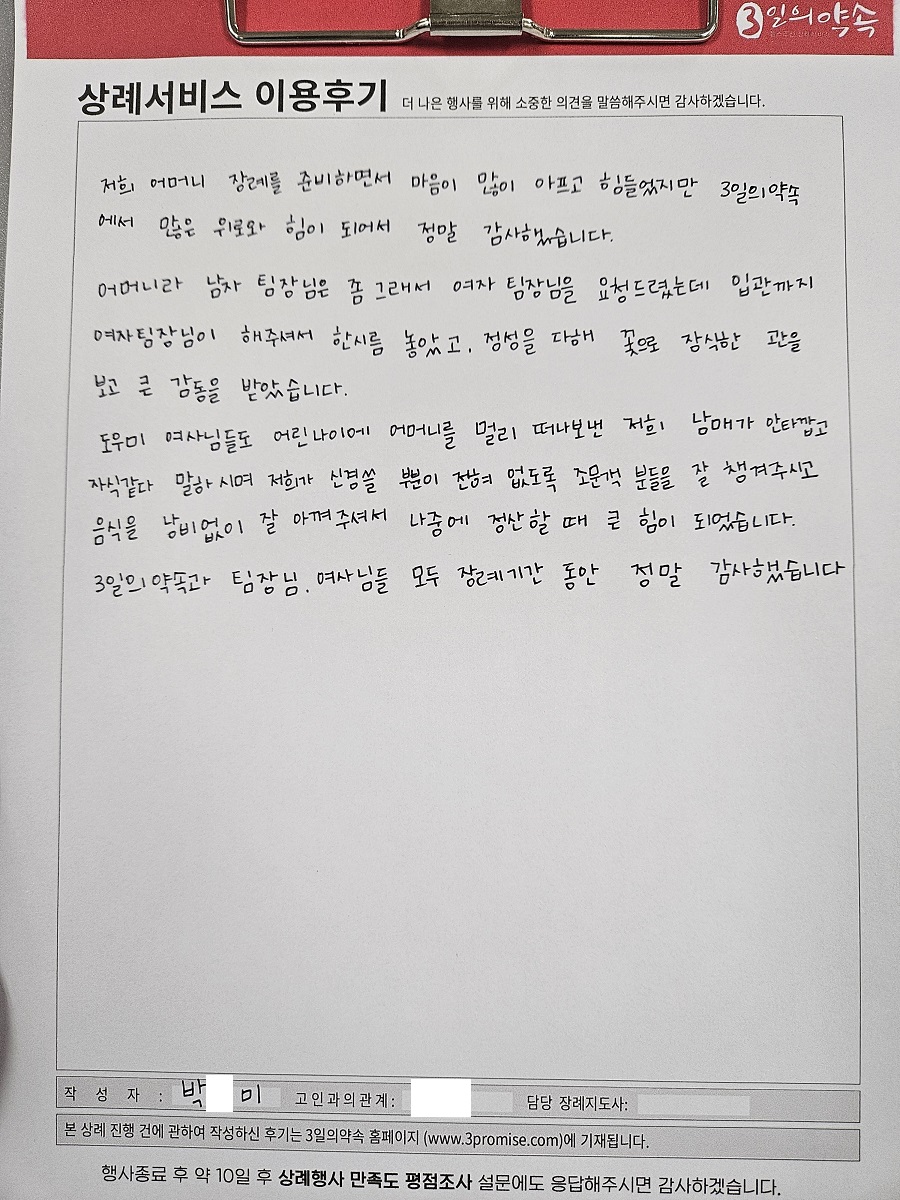 3일의약속
상례서비스 이용후기 더 나은 행사를 위해 소중한 의견을 말씀해주시면 감사하겠습니다.
저희 어머니 장례를 준비하면서 마음이 많이 아프고 힘들었지만 3일의약속
에서 많은 위로와 힘이 되어서 정말 감사했습니다.
어머니라 남자 팀장님은 좀 그래서 여자 팀장님을 요청드렸는데 입관까지
여자팀장님이 해주셔서 한시름 놓았고, 정성을 다해 꽃으로 장식한 관을
보고 큰 감동을 받았습니다.
도우미 여사님들도 어린나이에 어머니를 멀리 떠나보낸 저희 남매가 안타깝고
자식같다 말하시며 저희가 신경쓸 부분이 전혀 없도록 조문객 분들을 잘 챙겨주시고
음식을 낭비없이 잘 아껴주셔서 나중에 정산할 때 큰 힘이 되었습니다.
3일의약속과 팀장님, 여사님들 모두 장례기간 동안 정말 감사했습니다
작 성 자 : 박 미 고인과의관계: 담당 장례지도사:
본 상례 진행 건에 관하여 작성하신 후기는 3일의약속 홈페이지 (www.3promise.com)에 기재됩니다.
행사종료 후 약 10일 후 상례행사 만족도 평점조사 설문에도 응답해주시면 감사하겠습니다.